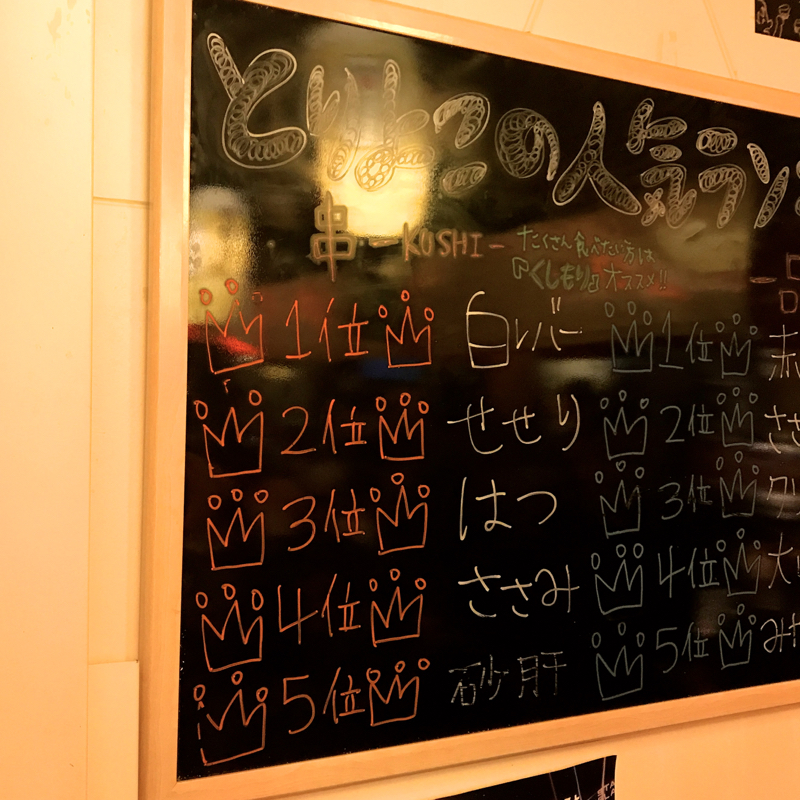 とりよこの人気ラン
串 -KUSHI- たくさん食べたい方は
『くしもり』オススメ!!
1位 白レバー
2位 せせり
3位 はつ
4位 ささみ
5位 砂肝
一品
1位
2位 ささ
3位 クリ
4位
5位